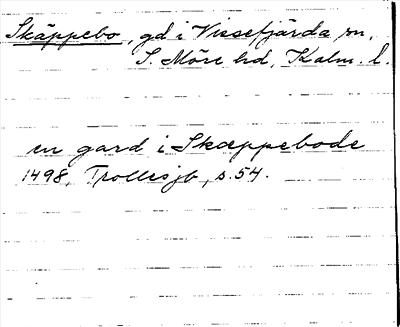 Skäppebo, gd i Vissefjärda sn,
S. Möre hd, Kalm. l.
en gard i Skæppebode
1498, Trollesjb, s. 54.